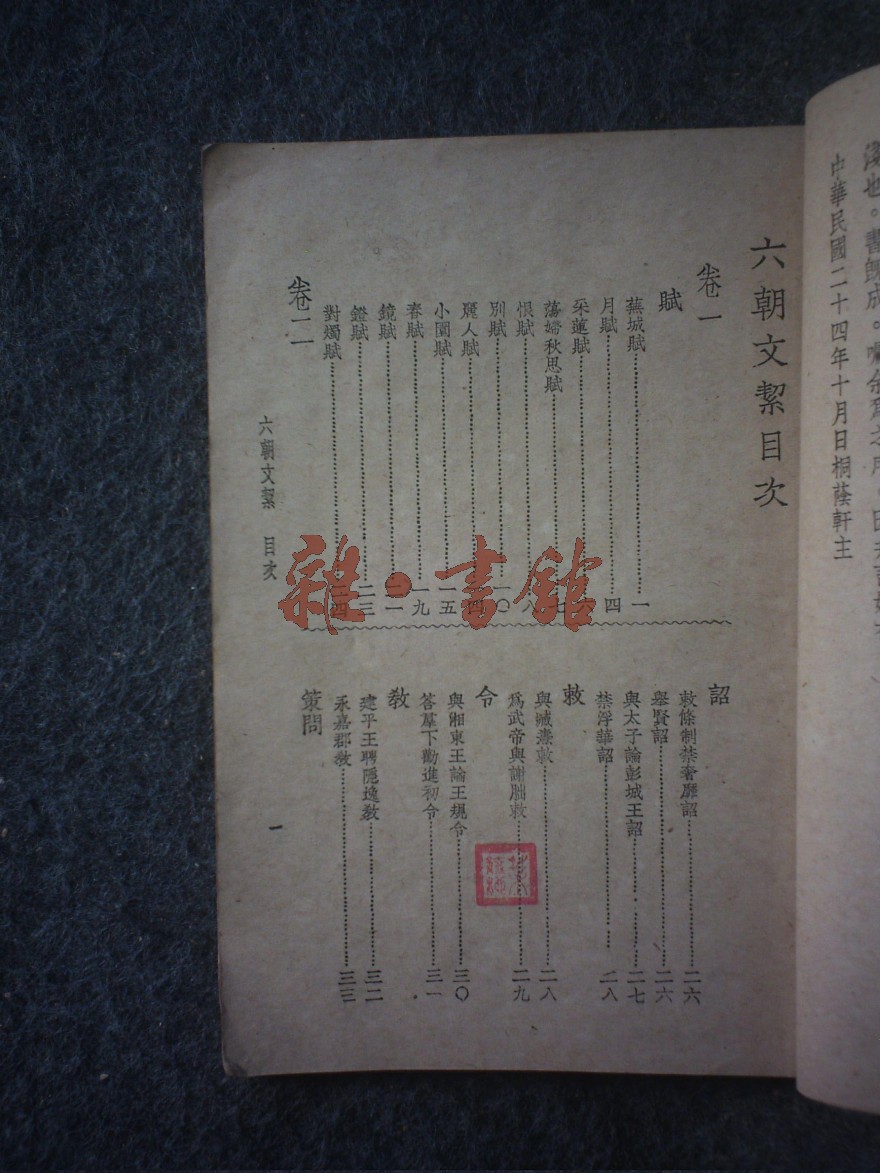 中華民國二十四年十月日桐蔭軒主
六朝文絜目次
卷一
賦
蕪城賦……一
月賦……四
采蓮賦……六
蕩婦秋思賦……七
恨賦……八
別賦……一〇
麗人賦……一四
小園賦……一五
春賦……一九
鏡賦……二一
鐙賦……二三
對燭賦……二四
卷二
詔
敕條制禁奢靡詔……二六
舉賢詔……二六
與太子論彭城王詔……二七
禁浮華詔……二八
敕
與臧燾敕……二八
爲武帝與謝朏敕……二九
令
與湘東王論王規令……三〇
答羣下勸進初令……三一
教
建平王聘隱逸教……三二
永嘉郡教……三三
策問
六朝文絜 目次
一
雜·書館